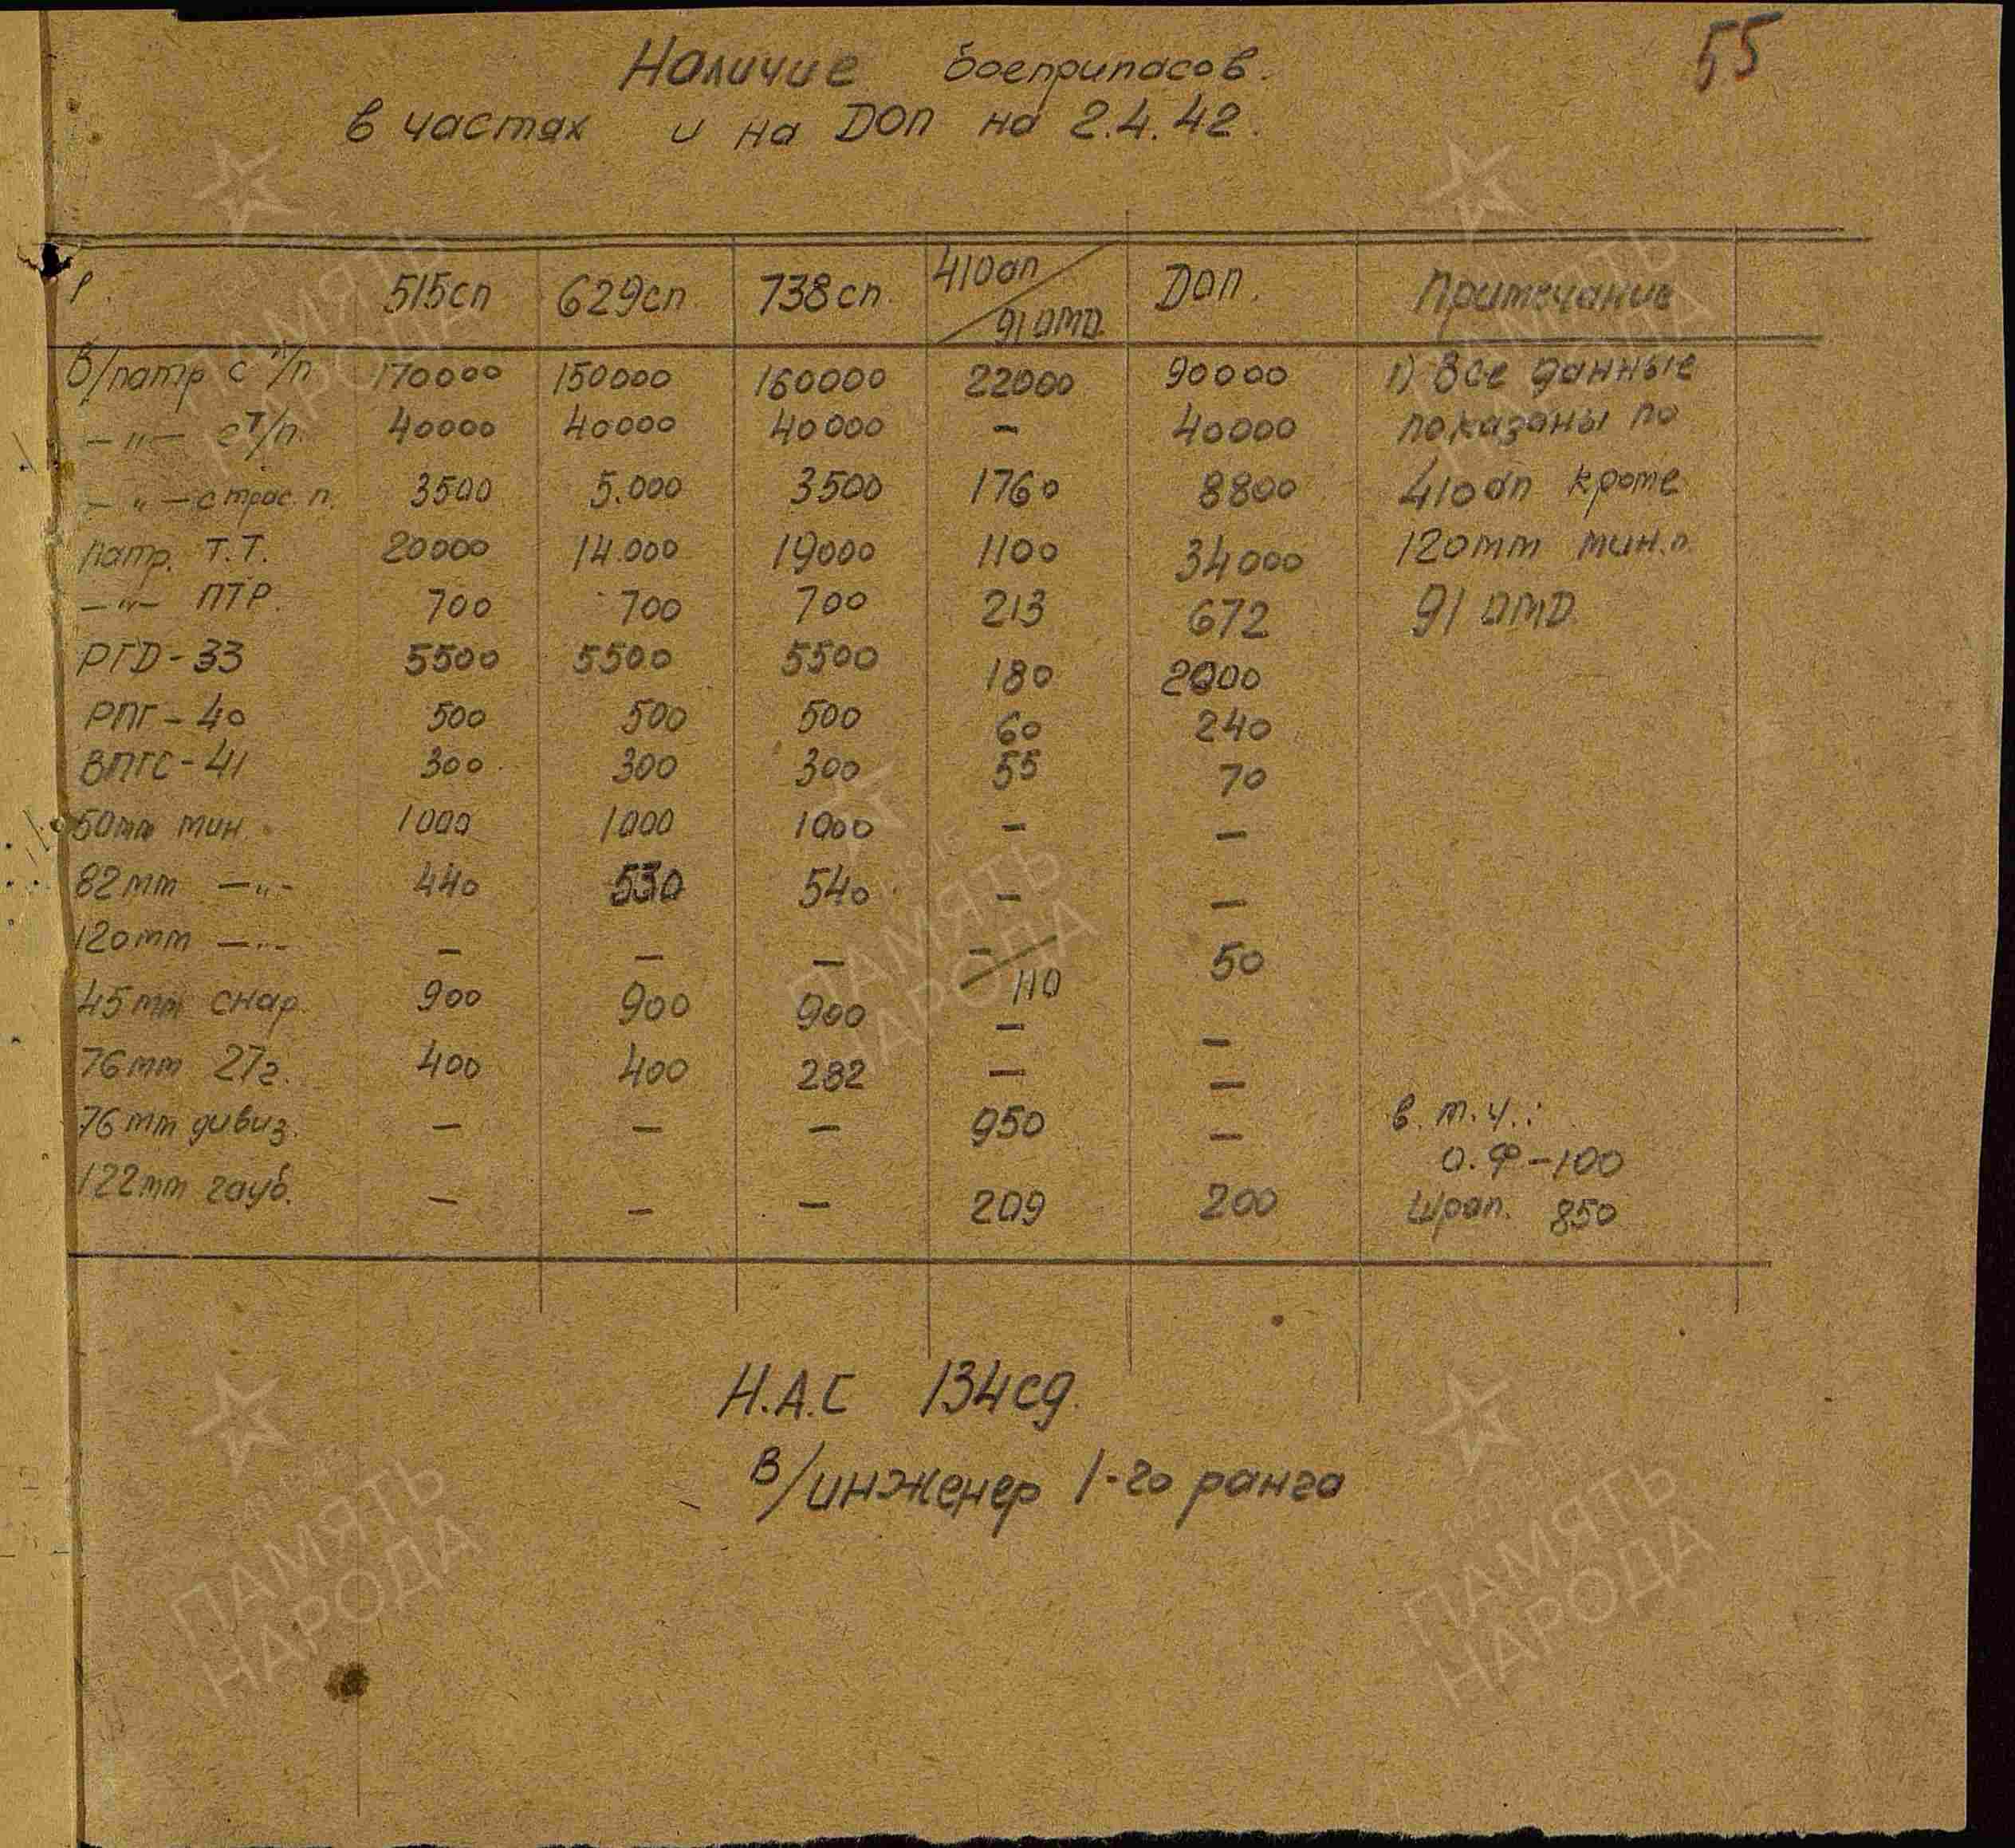 55
Наличие боеприпасов.
в частях и на ДОП на 2.4.42.
515сп 629сп. 738сп. 410ап / 91 ОМД. ДОП. Примечание
В/патр с л/п 170000 150000 160000 22000 90000 1) Все данные
—"— с т/п. 40000 40000 40000 — 40000 показаны по
—"— с трас. п. 3500 5.000 3500 1760 8800 410ап кроме
Патр. Т.Т. 20000 14.000 19000 1100 34000 120мм мин.п.
—"— ПТР. 700 700 700 213 672 91 ОМД.
РГД-33 5500 5500 5500 180 2000
РПГ-40 500 500 500 60 240
ВПГС-41 300. 300 300 55 70
50мм мин. 1000 1000 1000 — —
82мм —"— 440 530 540 — —
120мм —"— — — — — / 110 50
45мм снар. 900 900 900 — —
76мм 27г. 400 400 282 — —
76мм дивиз. — — — 950 — в т.ч.:
О.Ф-100
122мм гауб. — — — 209 200 Шрап. 850
Н.А.С 134сд.
В/инженер 1-го ранга
ПАМЯТЬ
НАРОДА
ПАМЯТЬ
НАРОДА
ПАМЯТЬ
НАРОДА
ПАМЯТЬ
НАРОДА
ПАМЯТЬ
НАРОДА